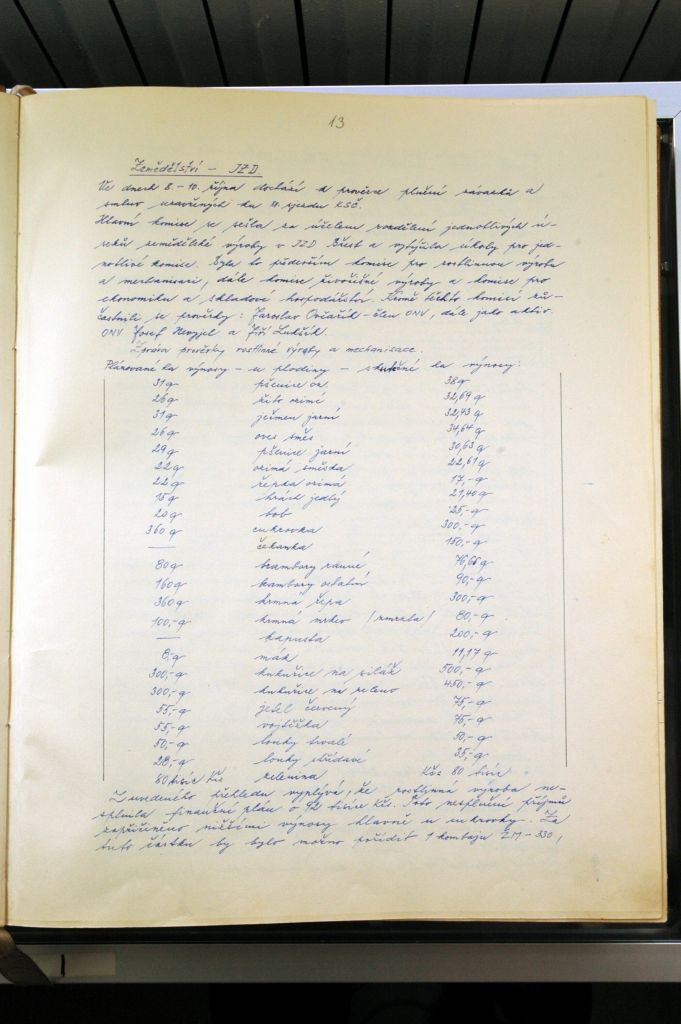 13
Zemědělství - JZD.
Ve dnech 8. - 10. října dochází k prověrce plnění závazků a
smluv uzavřených ku sjezdu KSČ.
Hlavní komise se sešla za účelem rozdělení jednotlivých ú-
seků zemědělské výroby v JZD Břest a vytýčila úkoly pro jed-
notlivé komise. Byla to především komise pro rostlinnou výrobu
a mechanisaci, dále komise živočišné výroby a komise pro
ekonomiku a skladové hospodářství. Kromě těchto komisí zú-
častnili se prověrky: Jaroslav Ovčařík - člen ONV, dále jako aktiv.
ONV Josef Nevyjel a Jiří Lukšík.
Zpráva prověrky rostlinné výroby a mechanisace.
Plánované ha výnosy - u plodiny - skutečné ha výnosy:
31 q pšenice oz. 38 q
26 q žito ozimé 32,69 q
31 q ječmen jarní 32,43 q
26 q oves směs 34,64 q
29 q pšenice jarní 30,63 q
22 q ozimá směska 22,61 q
22 q řepka ozimá 17,- q
15 q hrách jedlý 21,40 q
20 q bob 25,- q
360 q cukrovka 300,- q
— čekanka 150,- q
80 q brambory ranné 76,66 q
160 q brambory ostatní 90,- q
360 q krmná řepa 300,- q
100,- q krmná mrkev /zmrzla/ 80,- q
— kapusta 200,- q
8,- q mák 11,17 q
300,- q kukuřice na siláž 500,- q
300,- q kukuřice na zeleno 450,- q
55,- q jetel červený 75,- q
55,- q vojtěška 75,- q
50,- q louky trvalé 50,- q
28,- q louky střídavé 35,- q
80 tisíc Kčs zelenina Kčs 80 tisíc
Z uvedeného přehledu vyplývá, že rostlinná výroba ne-
splnila finanční plán o 92 tisíce Kčs. Toto nesplnění příjmů
zapříčiněno nižšími výnosy hlavně u cukrovky. Za
tuto částku by bylo možno pořídit 1 kombajn ŽM - 330,